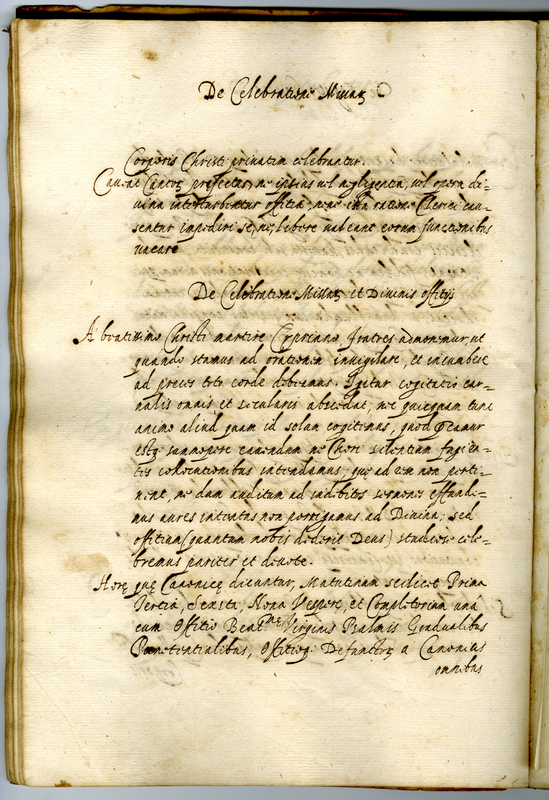 De Celebratione Missaꝝ
Corporis Christi privatim celebrantur.
Caveat Cantoꝝ prefectus, ne ipsius vel negligencia, vel opera di=
vina interturbentur offitia, neve illa ratione Clerici cau=
sentur impediri se, ne libere valeant eorum functionibus
vacare
De Celebratione Missaꝝ, et Divinis offitijs
A beatissimo Christi martire Cypriano fratres admonemur, ut
quando stamus ad orationem invigilare, et incumbere
ad preces toto corde debeamus. Igitur cogitatio car=
nalis omnis et secularis abscedat, nec quicquam tunc
animo aliud quam id solum cogitemus, quod precamur
estqꝫ summopere cavendum ne Chori silentium fugien=
tes collocutionibus intendamus, que ad rem non perti=
nent, ne dum auditum ad indebitos sermones effundi=
mus aures intentas non porrigamus ad Divina; sed
offitium (quantum nobis dederit Deus) studiose cele=
bremus pariter et devote.
Horę quę Canonicę dicuntur, Matutinam scilicet Prima
Tertia, Sexta, Nona Vespere, et Completorium una
cum Offitio Beat.me Virginis Psalmis Gradualibus
Penitentialibus, Offitioqꝫ Defunctoꝝ a Canonicis
omnibus